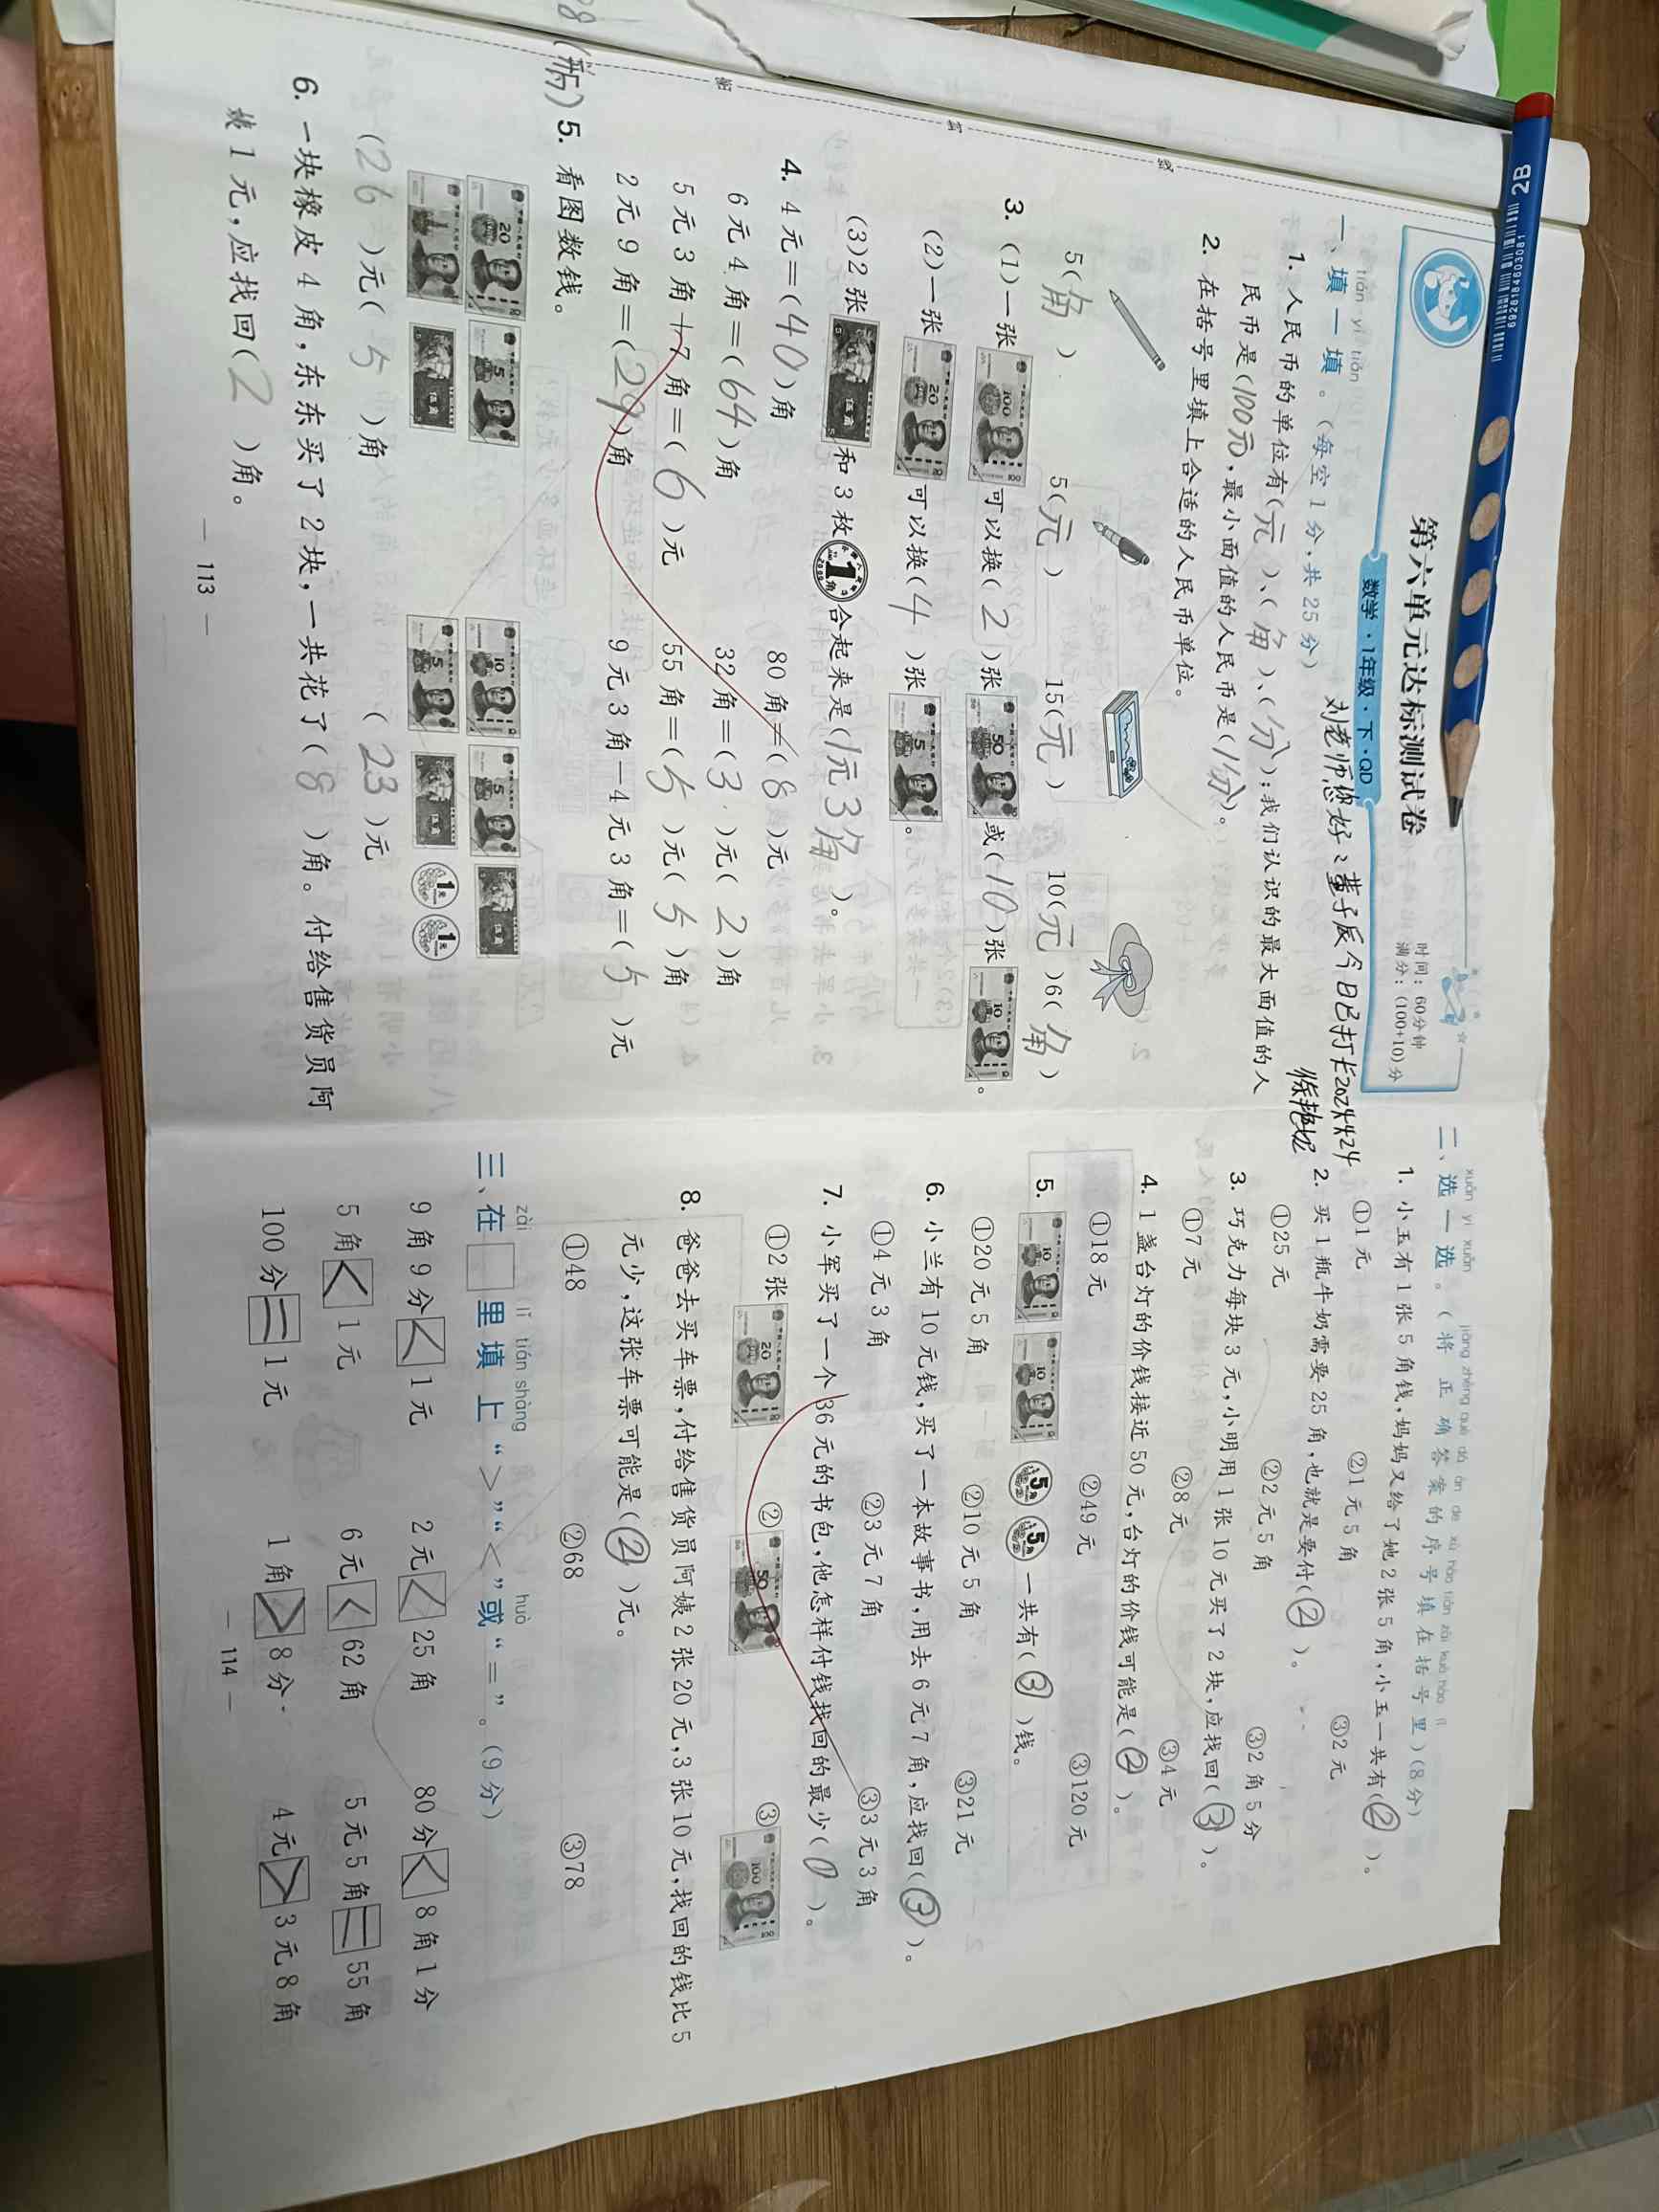 第六单元达标测试卷
数学·1年级·下·QD
时间：60分钟
满分：(100+10)分
刘老师您好：董子辰今日已打卡2024424
tián yi tián
一、填一填。(每空1分,共25分)
1. 人民币的单位有(元)、(角)、(分);我们认识的最大面值的人
民币是(100元),最小面值的人民币是(1分)。
2. 在括号里填上合适的人民币单位。
5(角) 5(元) 15(元) 10(元) 6(角)
3. (1)一张 100 可以换(2)张 50 或(10)张 10 。
(2)一张 20 可以换(4)张 5 。
(3)2张 伍角 和3枚 1角 合起来是(1元3角)。
4. 4元=(40)角 80角=(8)元
6元4角=(64)角 32角=(3)元(2)角
5元3角+7角=(6)元 55角=(5)元(5)角
2元9角=(29)角 9元3角-4元3角=(5)元
5. 看图数钱。
20 5 10 5 伍角
1 伍角 5 伍角 1元 1元
(26)元(5)角 (23)元
6. 一块橡皮4角,东东买了2块,一共花了(8)角。付给售货员阿
姨1元,应找回(2)角。
— 113 —
xuǎn yi xuǎn jiāng zhèng què dá àn de xù hào tián zài kuò hào lǐ
二、选一选。(将正确答案的序号填在括号里)(8分)
1. 小玉有1张5角钱,妈妈又给了她2张5角,小玉一共有(②)。
①1元 ②1元5角 ③2元
2. 买1瓶牛奶需要25角,也就是要付(②)。
①25元 ②2元5角 ③2角5分
3. 巧克力每块3元,小明用1张10元买了2块,应找回(③)。
①7元 ②8元 ③4元
4. 1盏台灯的价钱接近50元,台灯的价钱可能是(②)。
①18元 ②49元 ③120元
5. 10 10 5角 5角 一共有(③)钱。
①20元5角 ②10元5角 ③21元
6. 小兰有10元钱,买了一本故事书,用去6元7角,应找回(③)。
①4元3角 ②3元7角 ③3元3角
7. 小军买了一个36元的书包,他怎样付钱找回的最少(①)。
①2张 20 ② 50 ③ 100
8. 爸爸去买车票,付给售货员阿姨2张20元,3张10元,找回的钱比5
元少,这张车票可能是(②)元。
①48 ②68 ③78
zài lǐ tián shàng huò
三、在□里填上“>”“<”或“=”。(9分)
9角9分<1元 2元<25角 80分<8角1分
5角<1元 6元<62角 5元5角=55角
100分=1元 1角>8分 4元>3元8角
— 114 —
2B